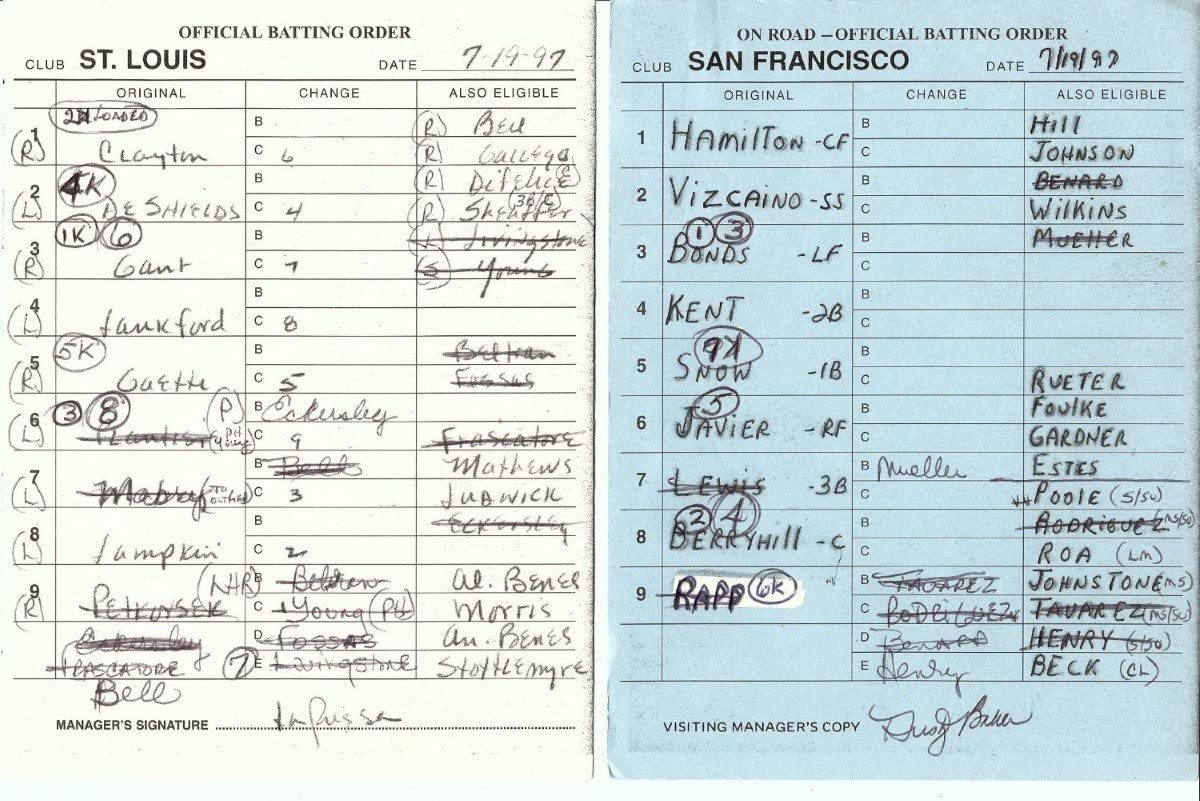 OFFICIAL BATTING ORDER
CLUB ST. LOUIS DATE 7-19-97
ORIGINAL CHANGE ALSO ELIGIBLE
LOADED B (R) Bell
1 (R) Clayton C 6 (R) Gallego
4K B (R) Difelice
2 (L) DE SHIELDS C 4 (R) Sheaffer (3B/C)
1K 6 B (L) Livingstone
3 (R) Gant C 7 (S) Young
B
4 (L) Lankford C 8
5K B Beltran
5 (R) Gaette C 5 Fossas
3 8 (P) B Eckersley
6 (L) Plantier (PH Young) C 9 Frascatore
B Bell Mathews
7 (L) Mabry C 3 Ludwick
B Eckersley
8 (L) Lampkin C 2
(LHB) B Beltran Al. Benes
9 (R) Petkovsek C 1 Young (PH) Morris
Eckersley D Fossas An. Benes
FRASCATORE 7 E Livingstone Stottlemyre
Bell
MANAGER'S SIGNATURE LaRussa
ON ROAD – OFFICIAL BATTING ORDER
CLUB SAN FRANCISCO DATE 7/19/97
ORIGINAL CHANGE ALSO ELIGIBLE
1 HAMILTON -CF B Hill
C JOHNSON
2 VIZCAINO -SS B BENARD
C WILKINS
1 3
3 BONDS -LF B MUELLER
C
4 KENT -2B B
C
9K
5 SNOW -1B B
C RUETER
5
6 JAVIER -RF B FOULKE
C GARDNER
7 LEWIS -3B B Mueller ESTES
C POOLE (S/SU)
2 4
8 BERRYHILL -C B RODRIGUEZ (MS/SU)
C ROA (LM)
9 RAPP 6K B TAVAREZ JOHNSTONE (MS)
C RODRIGUEZ TAVAREZ (MS/SU)
D Benard HENRY (S/SU)
E Henry BECK (CL)
VISITING MANAGER'S COPY Dusty Baker